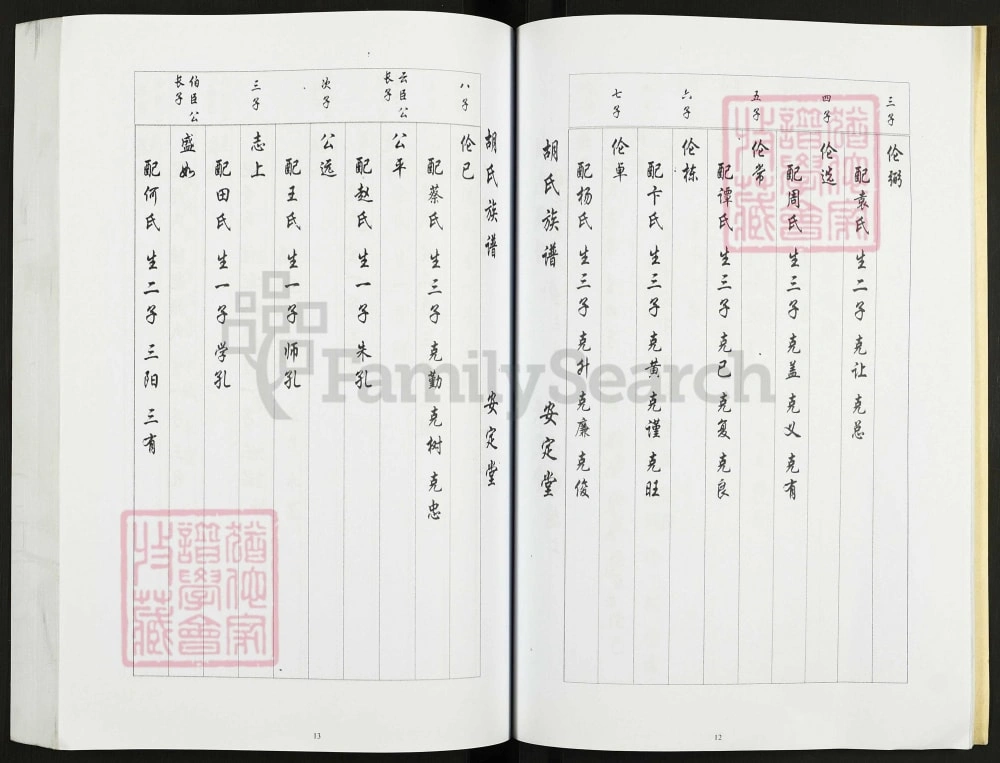 三子
伦弼
配袁氏 生二子 克让 克总
四子
伦选
配周氏 生三子 克盖 克义 克有
五子
伦常
配谭氏 生三子 克已 克复 克良
六子
伦栋
配卞氏 生三子 克黄 克谨 克旺
七子
伦卓
配杨氏 生三子 克升 克廉 克俊
胡氏族谱 安定堂
12
胡氏族谱 安定堂
八子
伦已
配蔡氏 生三子 克勤 克树 克忠
云臣公
长子
公平
配赵氏 生一子 朱孔
次子
公远
配王氏 生一子 师孔
三子
志上
配田氏 生一子 学孔
伯臣公
长子
盛如
配何氏 生二子 三阳 三有
13
FamilySearch
譜學會